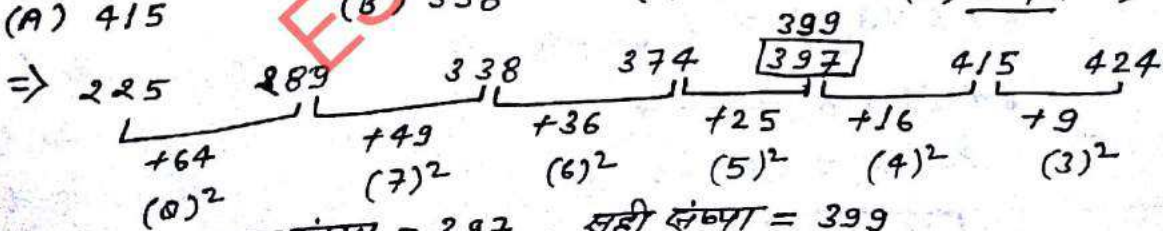 (A) 415 (B) 338
399
=> 225 289 338 374 397 415 424
+64 +49 +36 +25 +16 +9
(8)² (7)² (6)² (5)² (4)² (3)²
= 397 सही संख्या = 399